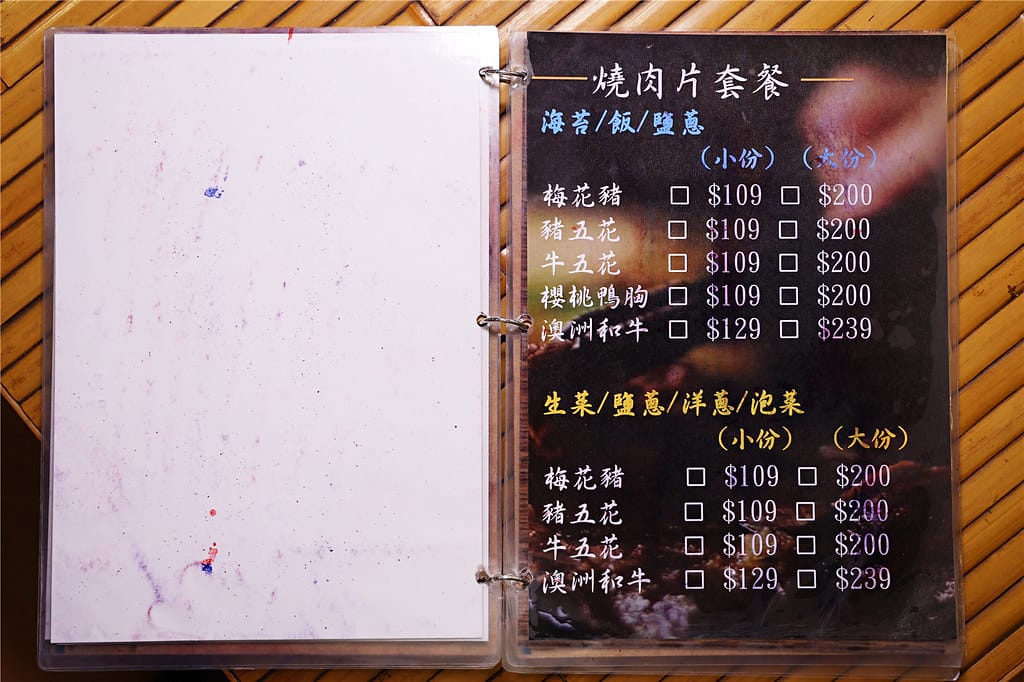 燒肉片套餐
海苔/飯/鹽蔥
(小份) (大份)
梅花豬 □ $109 □ $200
豬五花 □ $109 □ $200
牛五花 □ $109 □ $200
櫻桃鴨胸 □ $109 □ $200
澳洲和牛 □ $129 □ $239
生菜/鹽蔥/洋蔥/泡菜
(小份) (大份)
梅花豬 □ $109 □ $200
豬五花 □ $109 □ $200
牛五花 □ $109 □ $200
澳洲和牛 □ $129 □ $239